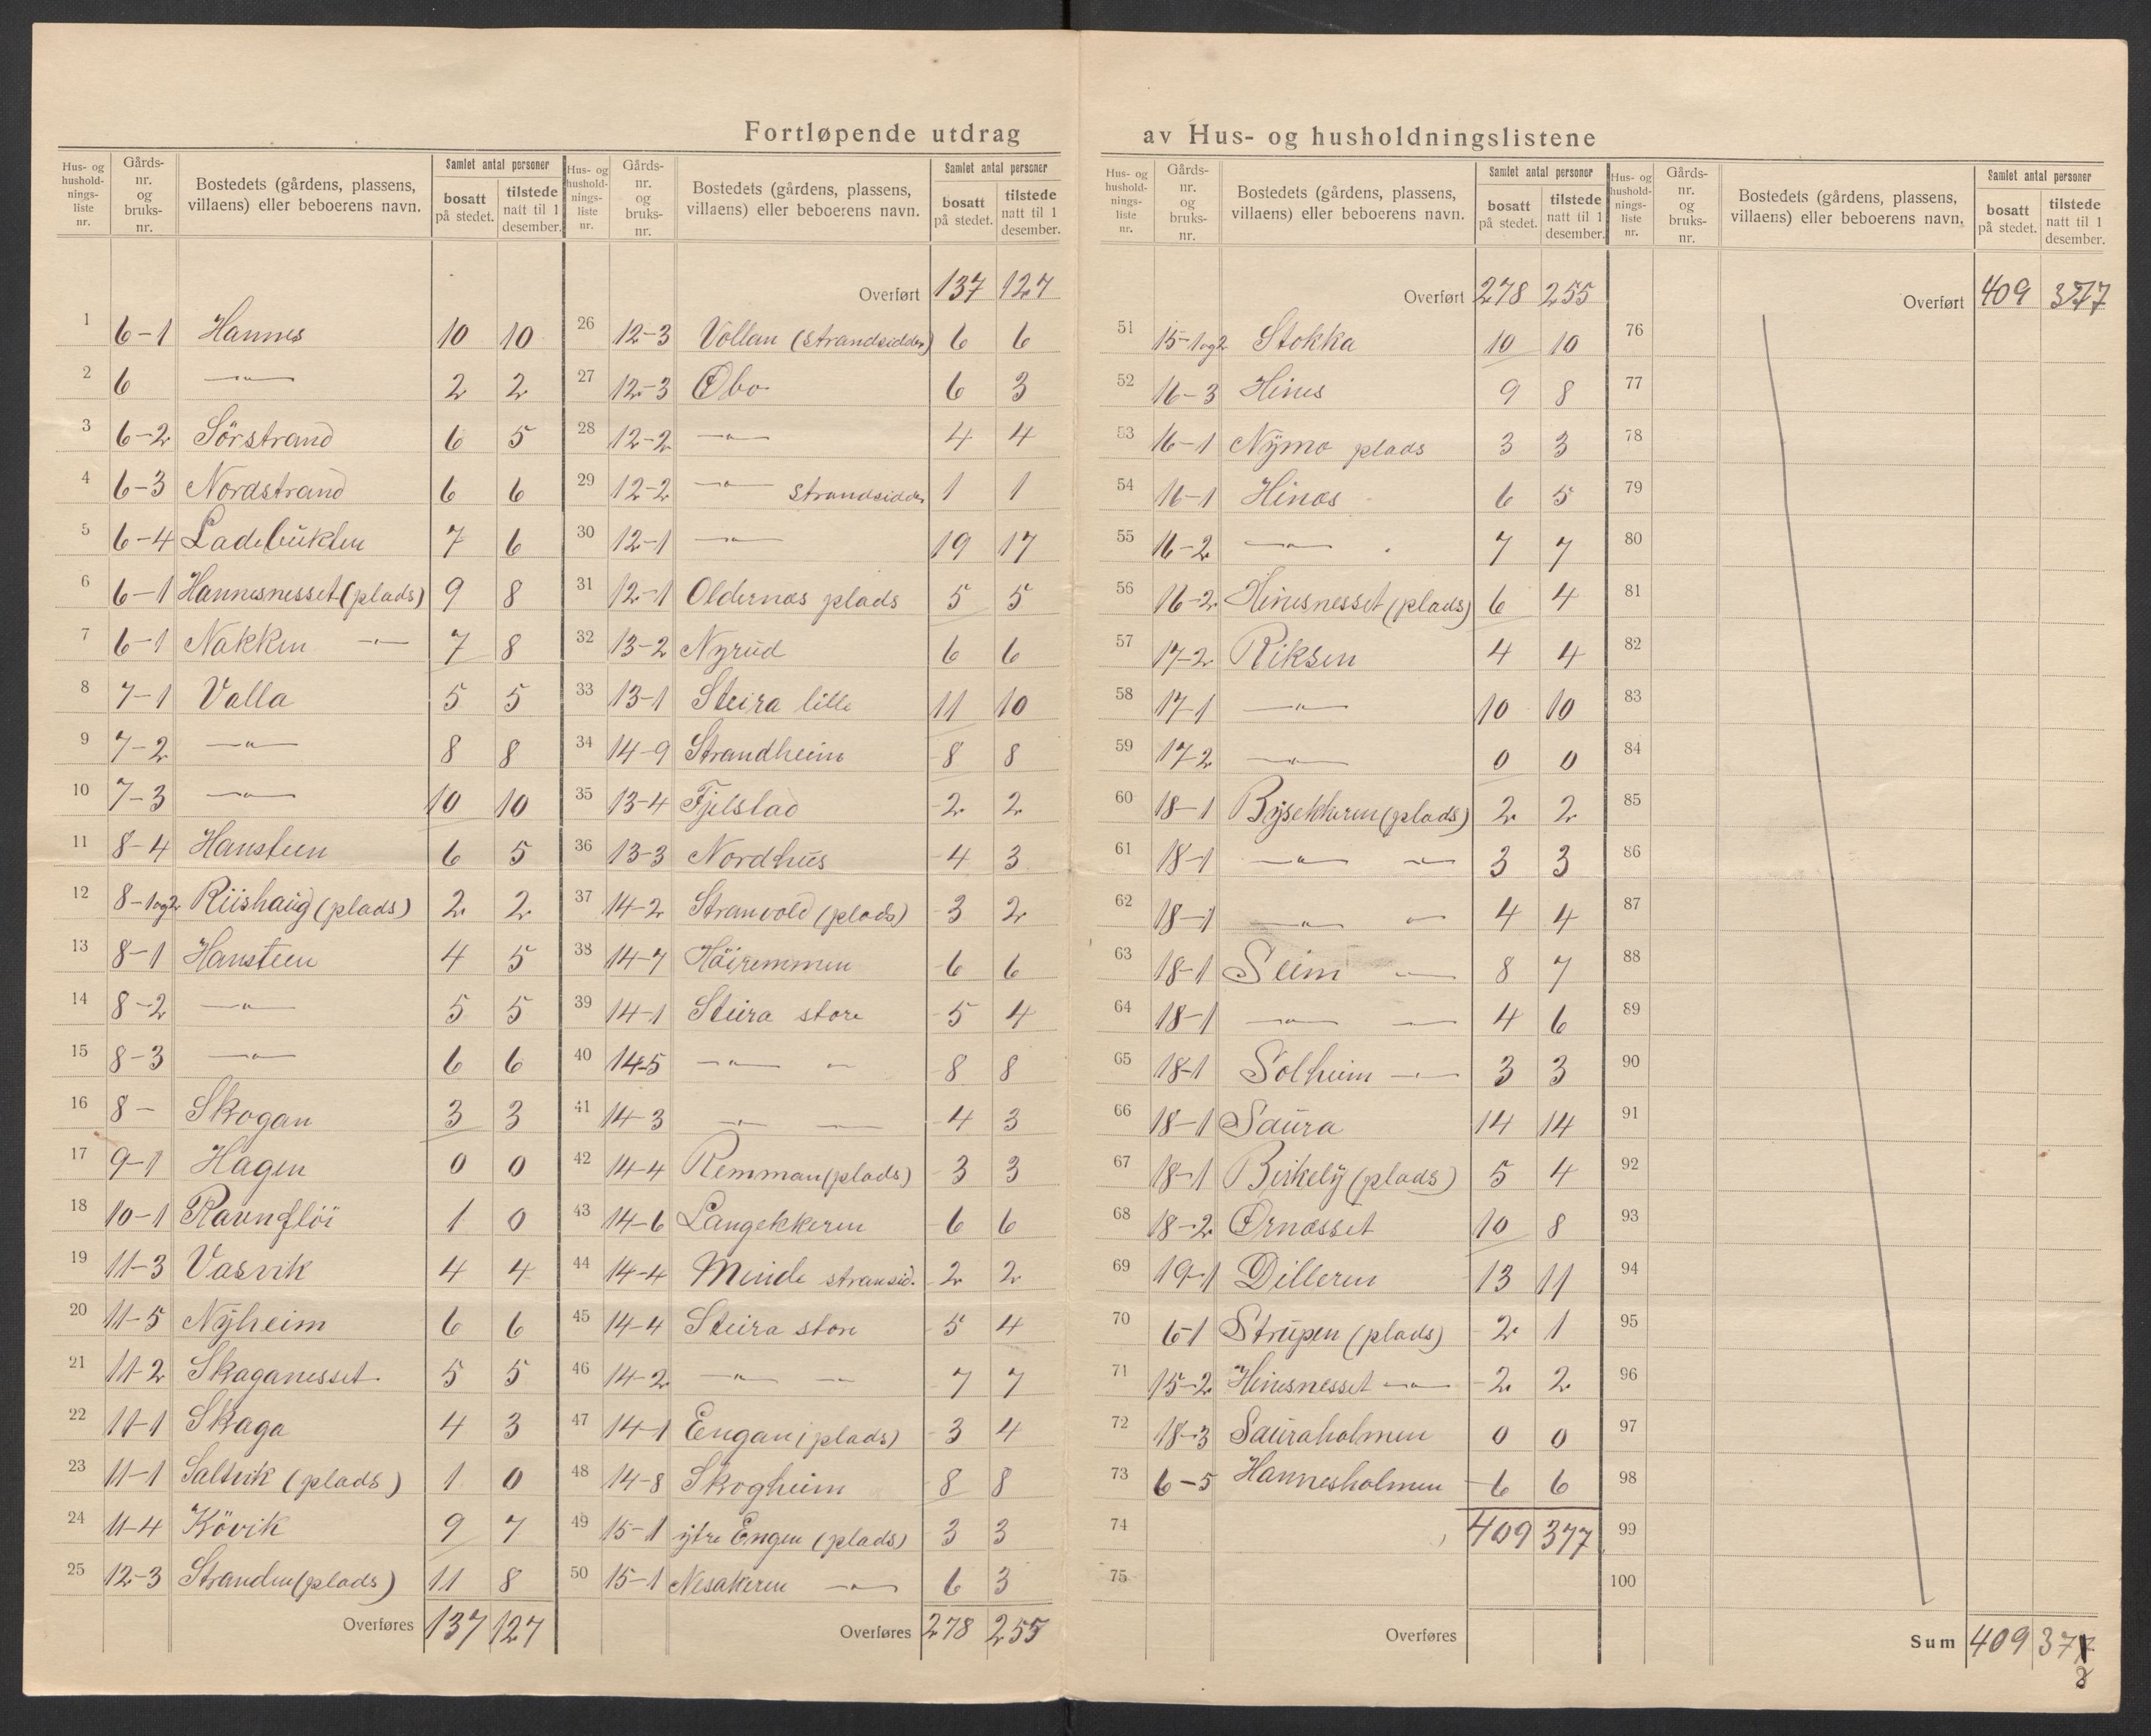 Fortløpende utdrag av Hus- og husholdningslistene
Hus- og husholdnings-liste nr. | Gårds-nr. og bruks-nr. | Bostedets (gårdens, plassens, villaens) eller beboerens navn. | Samlet antal personer | bosatt på stedet. | tilstede natt til 1 desember.
1 6-1 Hannes 10 10
2 6 —"— 2 2
3 6-2 Sörstrand 6 5
4 6-3 Nordstrand 6 6
5 6-4 Ladebukten 7 6
6 6-1 Hannesnesset (plads) 9 8
7 6-1 Nakken —"— 7 8
8 7-1 Valla 5 5
9 7-2 —"— 8 8
10 7-3 —"— 10 10
11 8-4 Hansteen 6 5
12 8-1og2 Riishaug (plads) 2 2
13 8-1 Hansteen 4 5
14 8-2 —"— 5 5
15 8-3 —"— 6 6
16 8- Skogan 3 3
17 9-1 Hagen 0 0
18 10-1 Ravnflöi 1 0
19 11-3 Vasvik 4 4
20 11-5 Nyheim 6 6
21 11-2 Skaganesset. 5 5
22 11-1 Skaga 4 3
23 11-1 Saltvik (plads) 1 0
24 11-4 Kövik 9 7
25 12-3 Stranden (plads) 11 8
Overføres 137 127
Hus- og husholdnings-liste nr. | Gårds-nr. og bruks-nr. | Bostedets (gårdens, plassens, villaens) eller beboerens navn. | Samlet antal personer | bosatt på stedet. | tilstede natt til 1 desember.
Overført 137 127
26 12-3 Vollan (strandsidder) 6 6
27 12-3 Øbo 6 3
28 12-2 —"— 4 4
29 12-2 —"— strandsidder 1 1
30 12-1 —"— 19 17
31 12-1 Oldernæs plads 5 5
32 13-2 Nyrud 6 6
33 13-1 Steira lille 11 10
34 14-9 Strandheim 8 8
35 13-4 Fjelstad 2 2
36 13-3 Nordhus 4 3
37 14-2 Stranvold (plads) 3 2
38 14-7 Höiremmen 6 6
39 14-1 Steira store 5 4
40 14-5 —"— — 8 8
41 14-3 —"— — 4 3
42 14-4 Remman (plads) 3 3
43 14-6 Langekkeren 6 6
44 14-4 Minde stransid. 2 2
45 14-4 Steira store 5 4
46 14-2 —"— — 7 7
47 14-1 Engan (plads) 3 4
48 14-8 Skogheim 8 8
49 15-1 ytre Engen (plads) 3 3
50 15-1 Nesakeren —"— 6 3
Overføres 278 255
Hus- og husholdnings-liste nr. | Gårds-nr. og bruks-nr. | Bostedets (gårdens, plassens, villaens) eller beboerens navn. | Samlet antal personer | bosatt på stedet. | tilstede natt til 1 desember.
Overført 278 255
51 15-1og2 Stokka 10 10
52 16-3 Hines 9 8
53 16-1 Nymo plads 3 3
54 16-1 Hinæs 6 5
55 16-2 —"— 7 7
56 16-2 Hinesnesset (plads) 6 4
57 17-2 Riksen 4 4
58 17-1 —"— 10 10
59 17-2 —"— 0 0
60 18-1 Bysekkeren (plads) 2 2
61 18-1 —"— —"— 3 3
62 18-1 —"— —"— 4 4
63 18-1 Seim —"— 8 7
64 18-1 —"— — 4 6
65 18-1 Solheim —"— 3 3
66 18-1 Saura 14 14
67 18-1 Birkely (plads) 5 4
68 18-2 Ørnæsset 10 8
69 19-1 Dilleren 13 11
70 6-1 Strupen (plads) 2 1
71 15-2 Hinesnesset —"— 2 2
72 18-3 Sauraholmen 0 0
73 6-5 Hannesholmen 6 6
74 409 377
75
Overføres
Hus- og husholdnings-liste nr. | Gårds-nr. og bruks-nr. | Bostedets (gårdens, plassens, villaens) eller beboerens navn. | Samlet antal personer | bosatt på stedet. | tilstede natt til 1 desember.
Overført 409 377
76
77
78
79
80
81
82
83
84
85
86
87
88
89
90
91
92
93
94
95
96
97
98
99
100
Sum 409 377
8